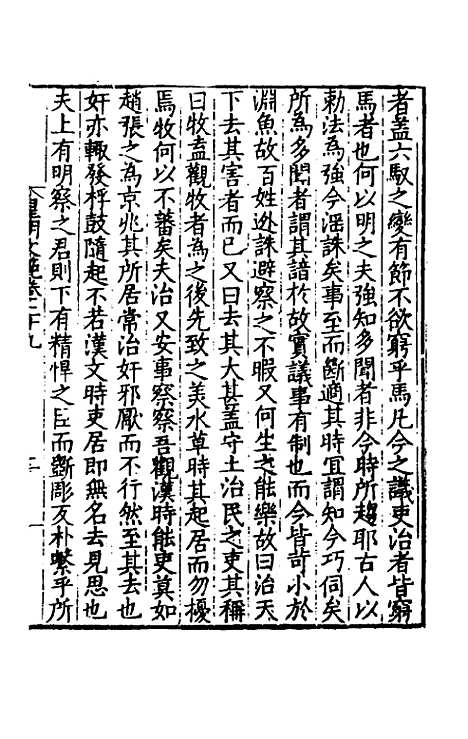 者蓋六馭之變有節不欲窮乎馬凡今之議吏治者皆窮
馬者也何以明之夫強知多聞者非今時所趨耶古人以
勅法為強今淫誅矣事至而斷適其時宜謂知今巧伺矣
所為多聞者謂其諳於故實議事有制也而今皆苛小於
淵魚故百姓迯誅避察之不暇又何生之能樂故曰治天
下去其害者而已又曰去其大甚蓋守土治民之吏其稱
曰牧盍觀牧者為之後先致之美水草時其起居而勿擾
焉牧何以不蕃矣夫治又安事察察吾觀漢時能吏莫如
趙張之為京兆其所居常治奸邪厭而不行然至其去也
奸亦輒發桴鼓隨起不若漢文時吏居即無名去見思也
夫上有明察之君則下有精悍之臣而斲彫反朴繫乎所
皇明文範卷二十九
二